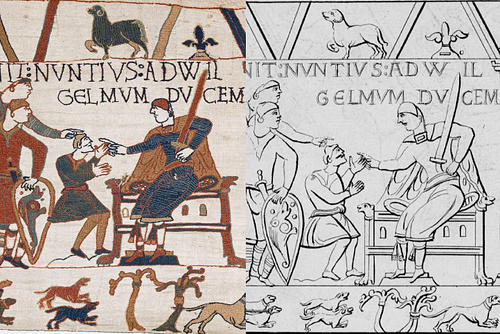 IT:NVNTIVS:ADWIL
GELMVM DVCEM
NIT:NUNTIUS:AD W IL
GELMUM DUCEM